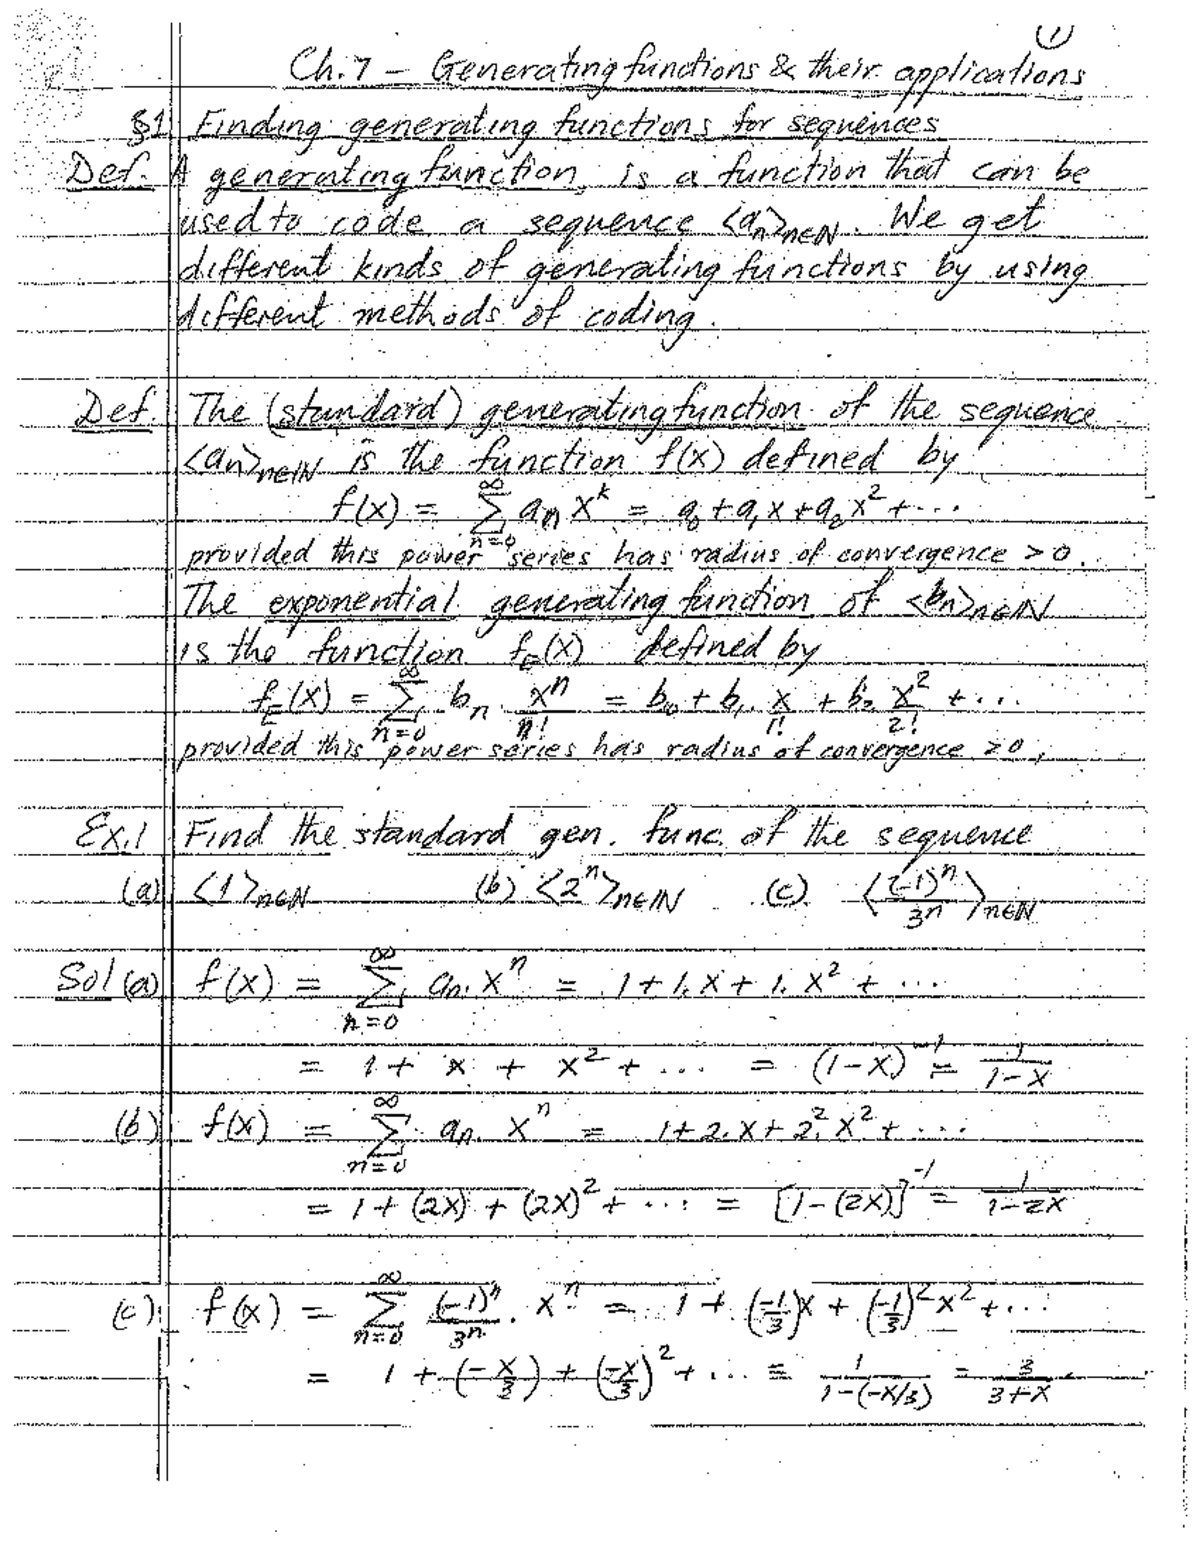 ①
Ch. 7 – Generating functions & their applications
§1 Finding generating functions for sequences
Def. A generating function, is a function that can be
used to code a sequence <aₙ>ₙ∈ℕ. We get
different kinds of generating functions by using
different methods of coding.
Def. The (standard) generating function of the sequence
<aₙ>ₙ∈ℕ is the function f(x) defined by
f(x) = ∑_{n=0}^{∞} aₙ xᵏ = a₀ + a₁x + a₂x² + ···
provided this power series has radius of convergence > 0.
The exponential generating function of <bₙ>ₙ∈ℕ
is the function f_E(x) defined by
f_E(x) = ∑_{n=0}^{∞} bₙ. xⁿ/n! = b₀ + b₁. x/1! + b₂ x²/2! + ···
provided this power series has radius of convergence >0.
Ex.1 Find the standard gen. func. of the sequence
(a) <1>ₙ∈ℕ (b) <2ⁿ>ₙ∈ℕ (c) <(-1)ⁿ/3ⁿ>ₙ∈ℕ
Sol (a) f(x) = ∑_{n=0}^{∞} aₙ. xⁿ = 1 + 1. x + 1. x² + ···
= 1 + x + x² + ... = (1-x)⁻¹ = 1/(1-x)
(b) f(x) = ∑_{n=0}^{∞} aₙ. xⁿ = 1 + 2. x + 2². x² + ···
= 1 + (2x) + (2x)² + ··· = [1-(2x)]⁻¹ = 1/(1-2x)
(c) f(x) = ∑_{n=0}^{∞} (-1)ⁿ/3ⁿ. xⁿ = 1 + (-1/3)x + (-1/3)²x² + ···
= 1 + (-x/3) + (-x/3)² + ... = 1/(1-(-x/3)) = 3/(3+x).